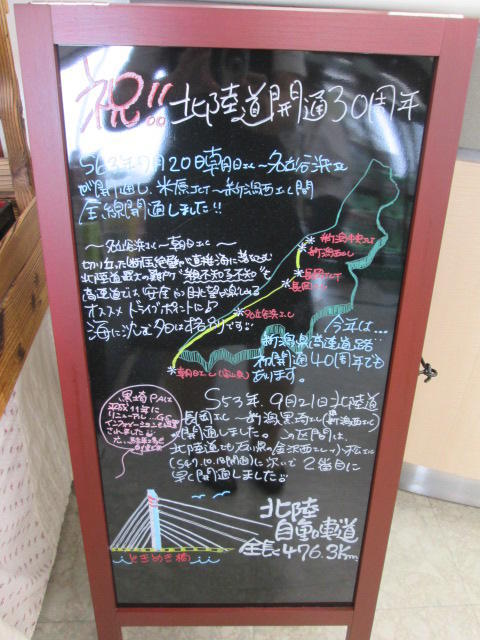 祝!! 北陸道開通30周年
S63年7月20日朝日IC～名立谷浜IC
が開通し、米原JCT～新潟西IC間
全線開通しました!!
～名立谷浜IC～朝日IC～
切り立った断崖絶壁が直接海に落ち込む
北陸道最大の難所"親不知子不知"も
高速道では安全に眺望が楽しめる
オススメドライブポイントに♪
海に沈む夕日は格別です
新潟中央JCT
新潟西IC
長岡JCT
長岡IC
名立谷浜IC
朝日IC(富山県)
今年は…
新潟県高速道路
初開通40周年でも
あります。
黒埼PAは
平成11年に
リニューアル
インフォメーションも
S53年、9月21日北陸道
長岡IC～新潟黒埼IC(新潟西IC)
が開通しました。この区間は、
北陸道でも石川県の金沢西IC～小松IC
(S47.10.18開通)に次いで2番目に
早く開通しました
北陸
自動車道
全長476.3Km
ときめき橋